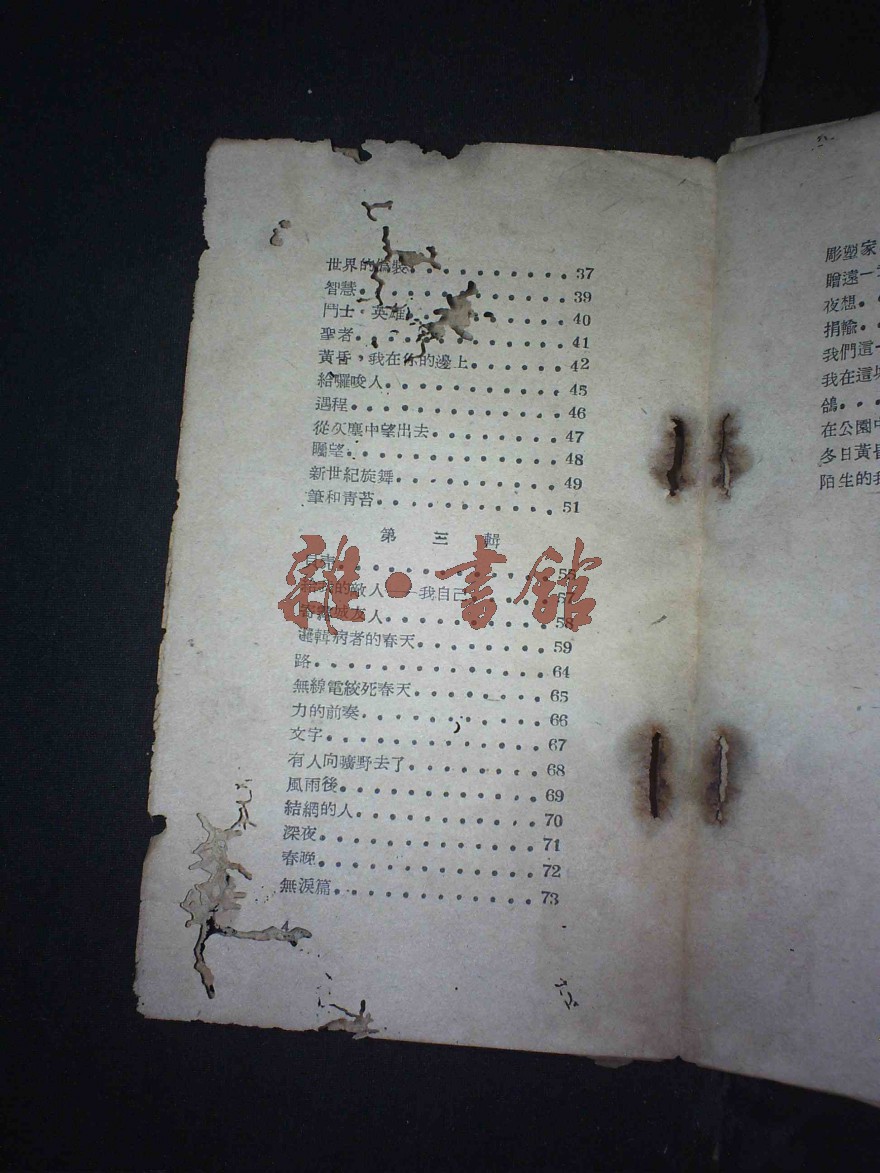 世界的偽裝 37
智慧 39
鬥士·英雄 40
聖者 41
黃昏，我在你的邊上 42
給囉唆人 45
過程 46
從灰塵中望出去 47
矚望 48
新世紀旋舞 49
筆和青苔 51
第三輯
55
的敵人——我自己 57
寄霧城友人 58
邏輯病者的春天 59
路 64
無線電絞死春天 65
力的前奏 66
文字 67
有人向曠野去了 68
風雨後 69
結網的人 70
深夜 71
春晚 72
無淚篇 73
4
雜·書館
彫塑家
贈遠一
夜想
捐輸
我們這一
我在這
鴿
在公園中
冬日黃昏
陌生的我